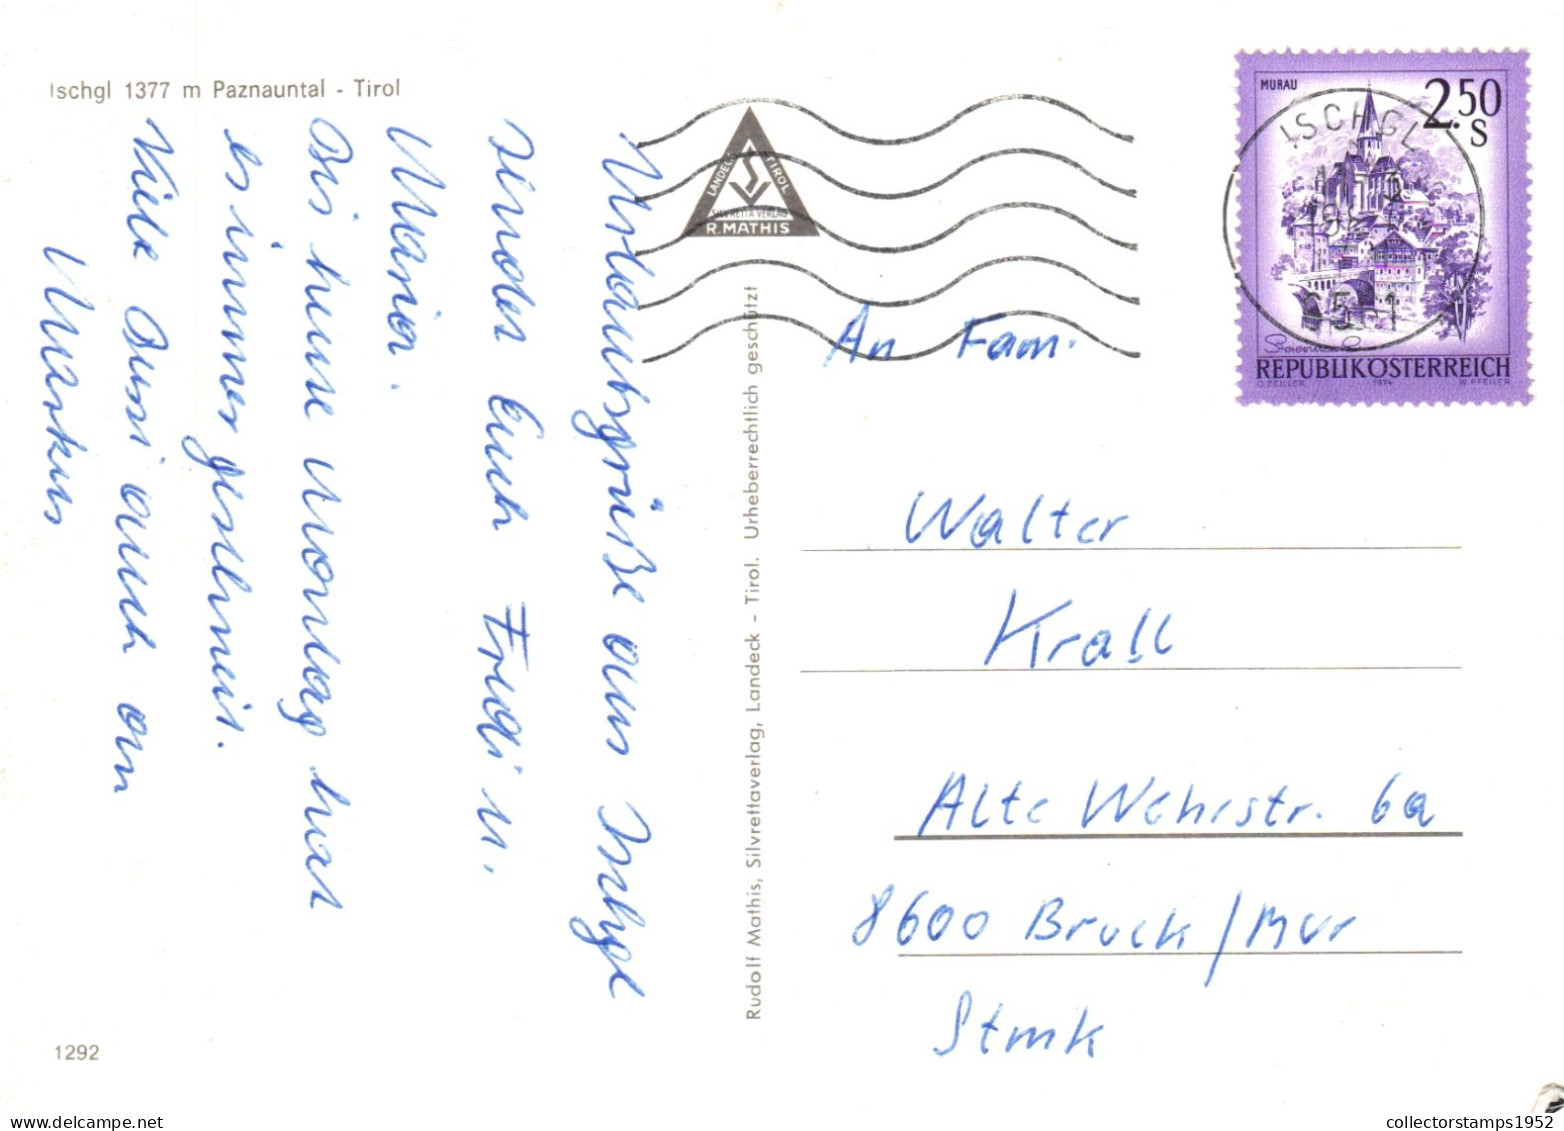 Ischgl 1377 m Paznauntal - Tirol
Urlaubsgrüße aus Ischgl
Euch Fredi u.
Maria.
Bis heute Montag hat
es immer geschneit.
Viele Bussi auch an
Markus
1292
Rudolf Mathis, Silvrettaverlag, Landeck - Tirol. Urheberrechtlich geschützt
LANDECK TIROL
SILVRETTA VERLAG
R. MATHIS
MURAU
2.50
S
ISCHGL
Steiermark
REPUBLIK ÖSTERREICH
O. ZEILLER 1974 W. PFEILER
An Fam.
Walter
Krall
Alte Wehrstr. 6a
8600 Bruck/Mur
Stmk
collectorstamps1952